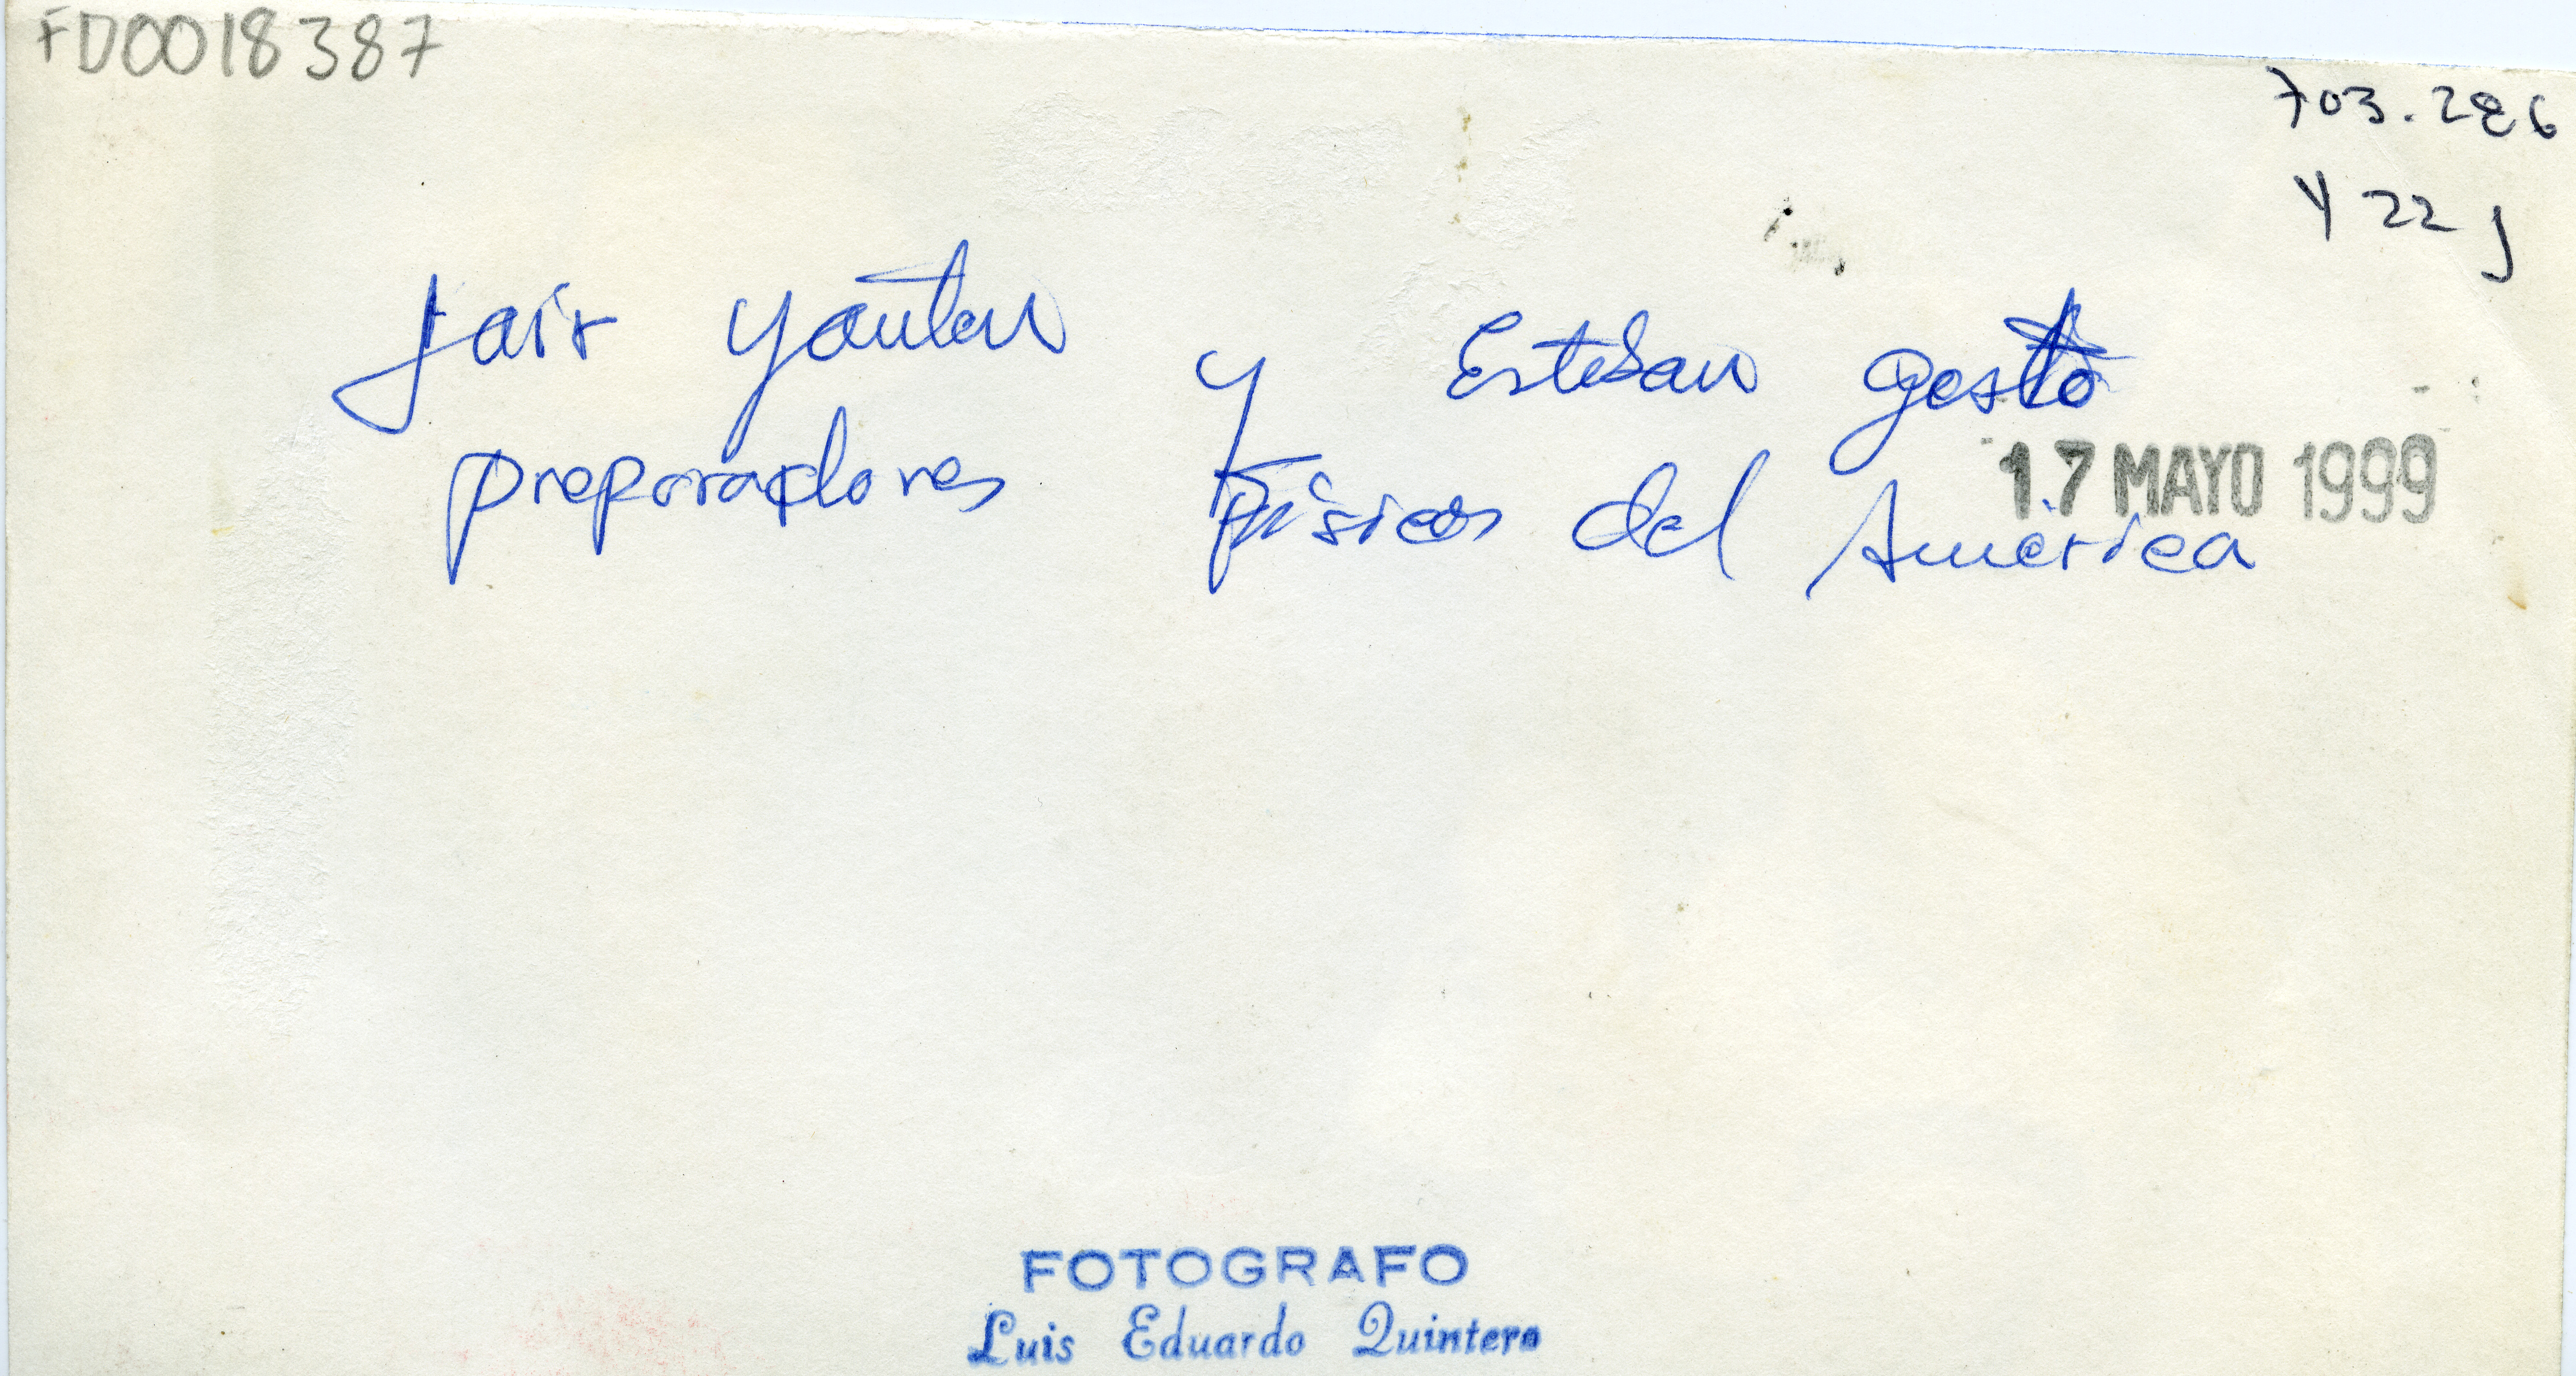 FD0018387
703.286
Y 22 J
Jair Yanten y Esteban Gesto
preparadores Fisicos del América
17 MAYO 1999
FOTOGRAFO
Luis Eduardo Quintero